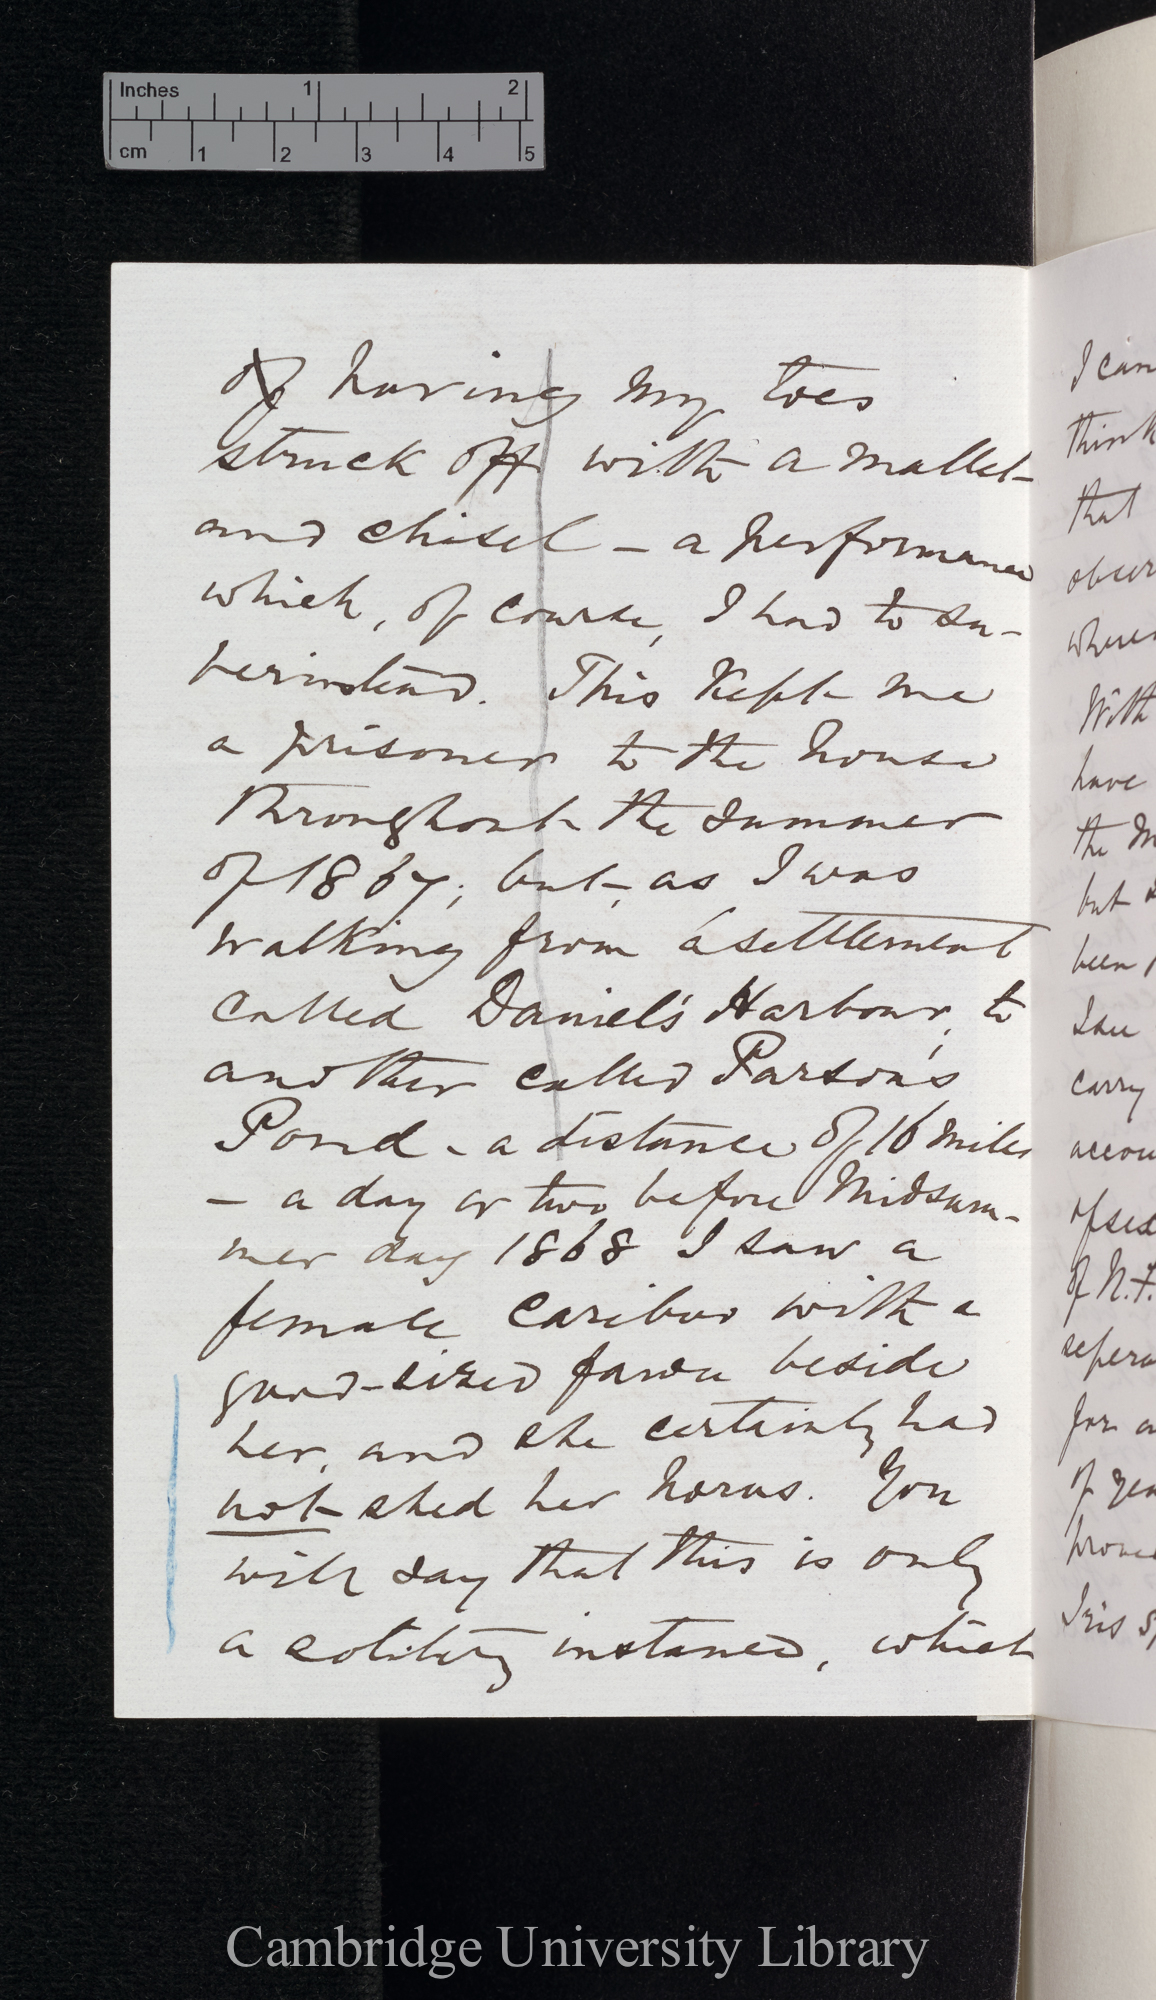 Inches 1 2
cm 1 2 3 4 5
of having my toes
struck off with a mallet
and chisel – a performance
which, of course, I had to su-
perintend. This kept me
a prisoner to the house
throughout the summer
of 1867; but, as I was
walking from a settlement
called Daniel's Harbour, to
another called Parson's
Pond – a distance of 16 miles
– a day or two before Midsum-
mer day 1868 I saw a
female Caribou with a
good-sized fawn beside
her, and she certainly had
not shed her horns. You
will say that this is only
a solitary instance, which
I can
think
that
obser
where
With
have
the M
but I
been
I see
carry
accou
of sea
of N.F.
for a
of yea
Iris S
Cambridge University Library